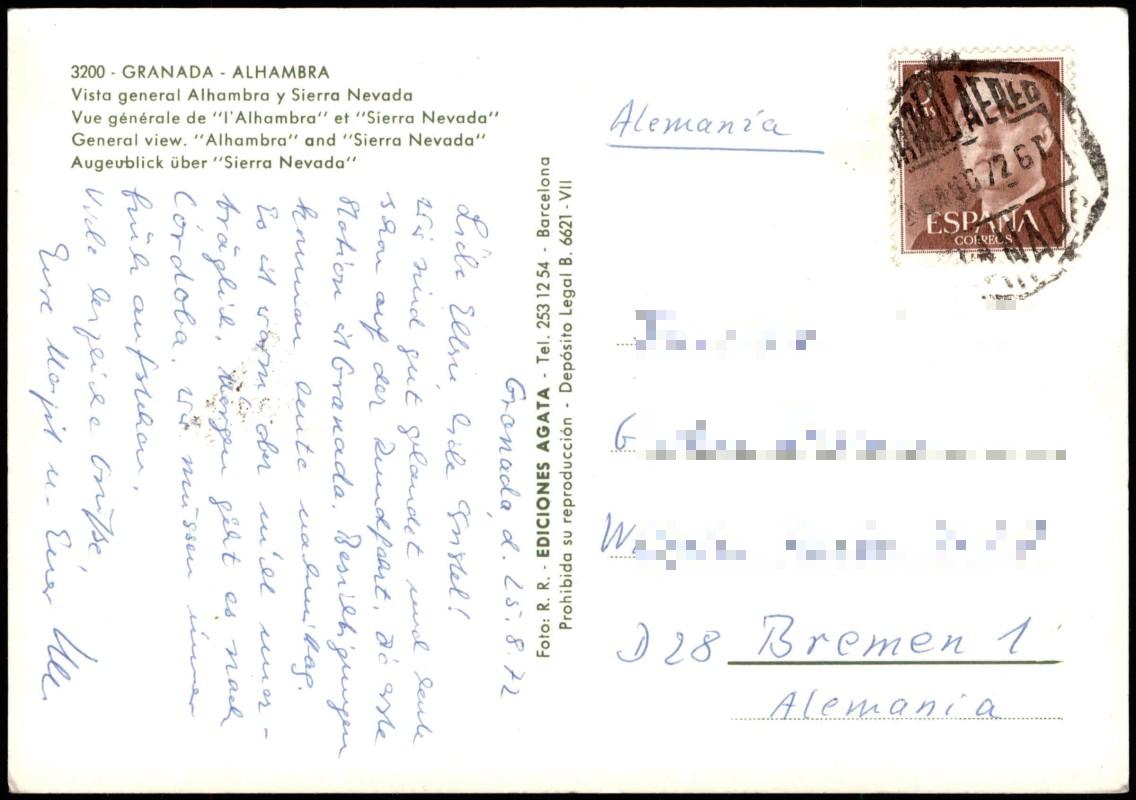 3200 - GRANADA - ALHAMBRA
Vista general Alhambra y Sierra Nevada
Vue générale de "l'Alhambra" et "Sierra Nevada"
General view. "Alhambra" and "Sierra Nevada"
Augeublick über "Sierra Nevada"
Granada, d. 25.8.72
Liebe Ellen, liebe Christel!
Wir sind gut gelandet und heute
schon auf der Rundfahrt. Die erste
Station ist Granada. Besichtigungen
kommen heute nachmittag.
Es ist warm aber nicht uner-
träglich. Morgen geht es nach
Córdoba. Wir müssen immer
früh aufstehen.
Viele herzliche Grüße,
Eure Marjit u. Euer
Foto: R. R. - EDICIONES AGATA - Tel. 253 12 54 - Barcelona
Prohibida su reproducción - Depósito Legal B. 6621 - VII
Alemania
CORREO AEREO
AGO 72 6T
GRANADA
ESPAÑA
CORREOS
D 28 Bremen 1
Alemania